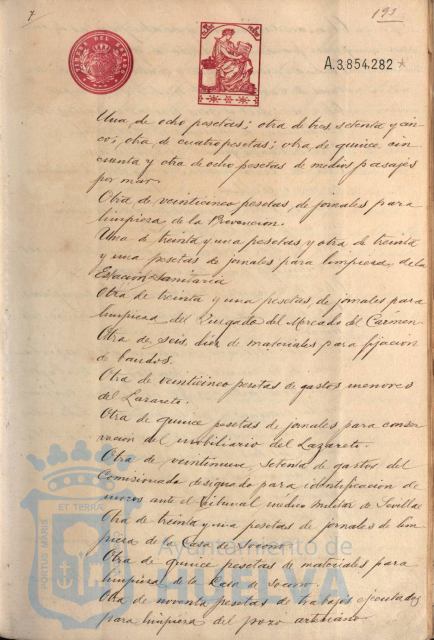 7
193
TIMBRE DEL ESTADO
A.3.854.282
Una, de ocho pesetas; otra de tres, setenta y cin-
co; otra de cuatro pesetas; otra, de quince, cin-
cuenta y otra de ocho pesetas de medios pasajes
por mar.
Otra de veinticinco pesetas, de jornales para
limpieza de la Prevencion.
Una de treinta y una pesetas y otra de treinta
y una pesetas de jornales para limpieza de la
Estación Sanitaria
Otra de treinta y una pesetas de jornales para
limpieza del Juzgado del Mercado del Cármen
Otra de seis, diez de materiales para fijacion
de bandos.
Otra de veinticinco pesetas de gastos menores
del Lazareto.
Otra de quince pesetas de jornales para conser-
vación del mobiliario del Lazareto.
Otra de veintinueve, setenta de gastos del
Comisionado designado para identificación de
mozos ante el Tribunal médico militar de Sevilla
Otra de treinta y una pesetas de jornales de lim-
pieza de la Casa de Socorro
Otra de quince pesetas de materiales para
limpieza de la Casa de Socorro.
Otra de noventa pesetas de trabajos ejecutados
para limpieza del pozo artesiano
PORTUS MARIS ET TERRAE
Ayuntamiento de
HUELVA